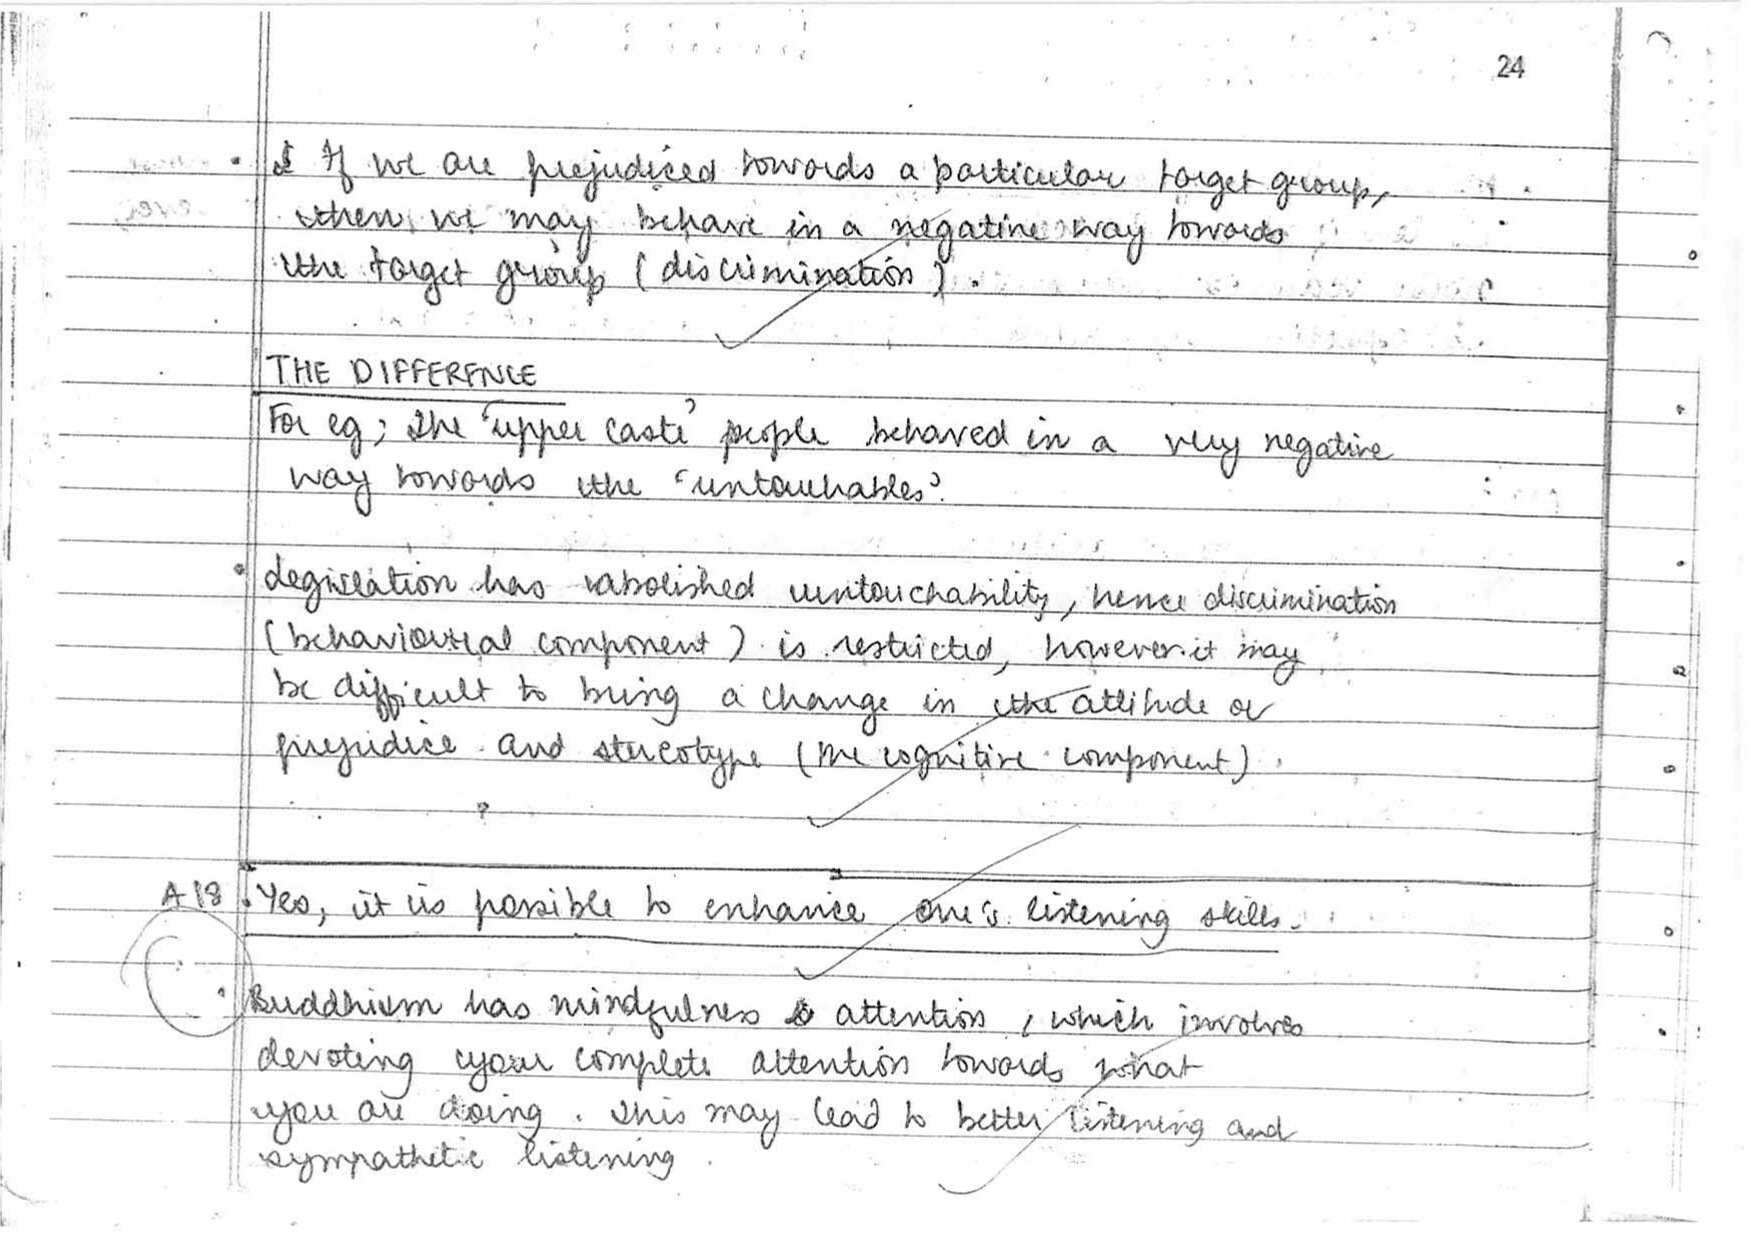 24
• If we are prejudiced towards a particular target group,
then, we may behave in a negative way towards
the target group (discrimination).
THE DIFFERENCE
For eg; the 'upper caste' people behaved in a very negative
way towards the 'untouchables'.
• Legislation has abolished untouchability, hence discrimination
(behavioural component) is restricted, however it may
be difficult to bring a change in the attitude or
prejudice and stereotype (the cognitive component).
A18 • Yes, it is possible to enhance one's listening skills.
• Buddhism has mindfulness & attention, which involves
devoting your complete attention towards what
you are doing. This may lead to better listening and
sympathetic listening.